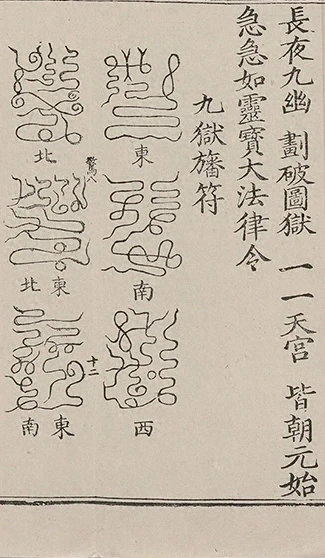 長夜九幽 劃破圖獄 一一天宮 皆朝元始
急急如靈寶大法律令
九獄旛符
東
南
西
北
東北
東南
十二